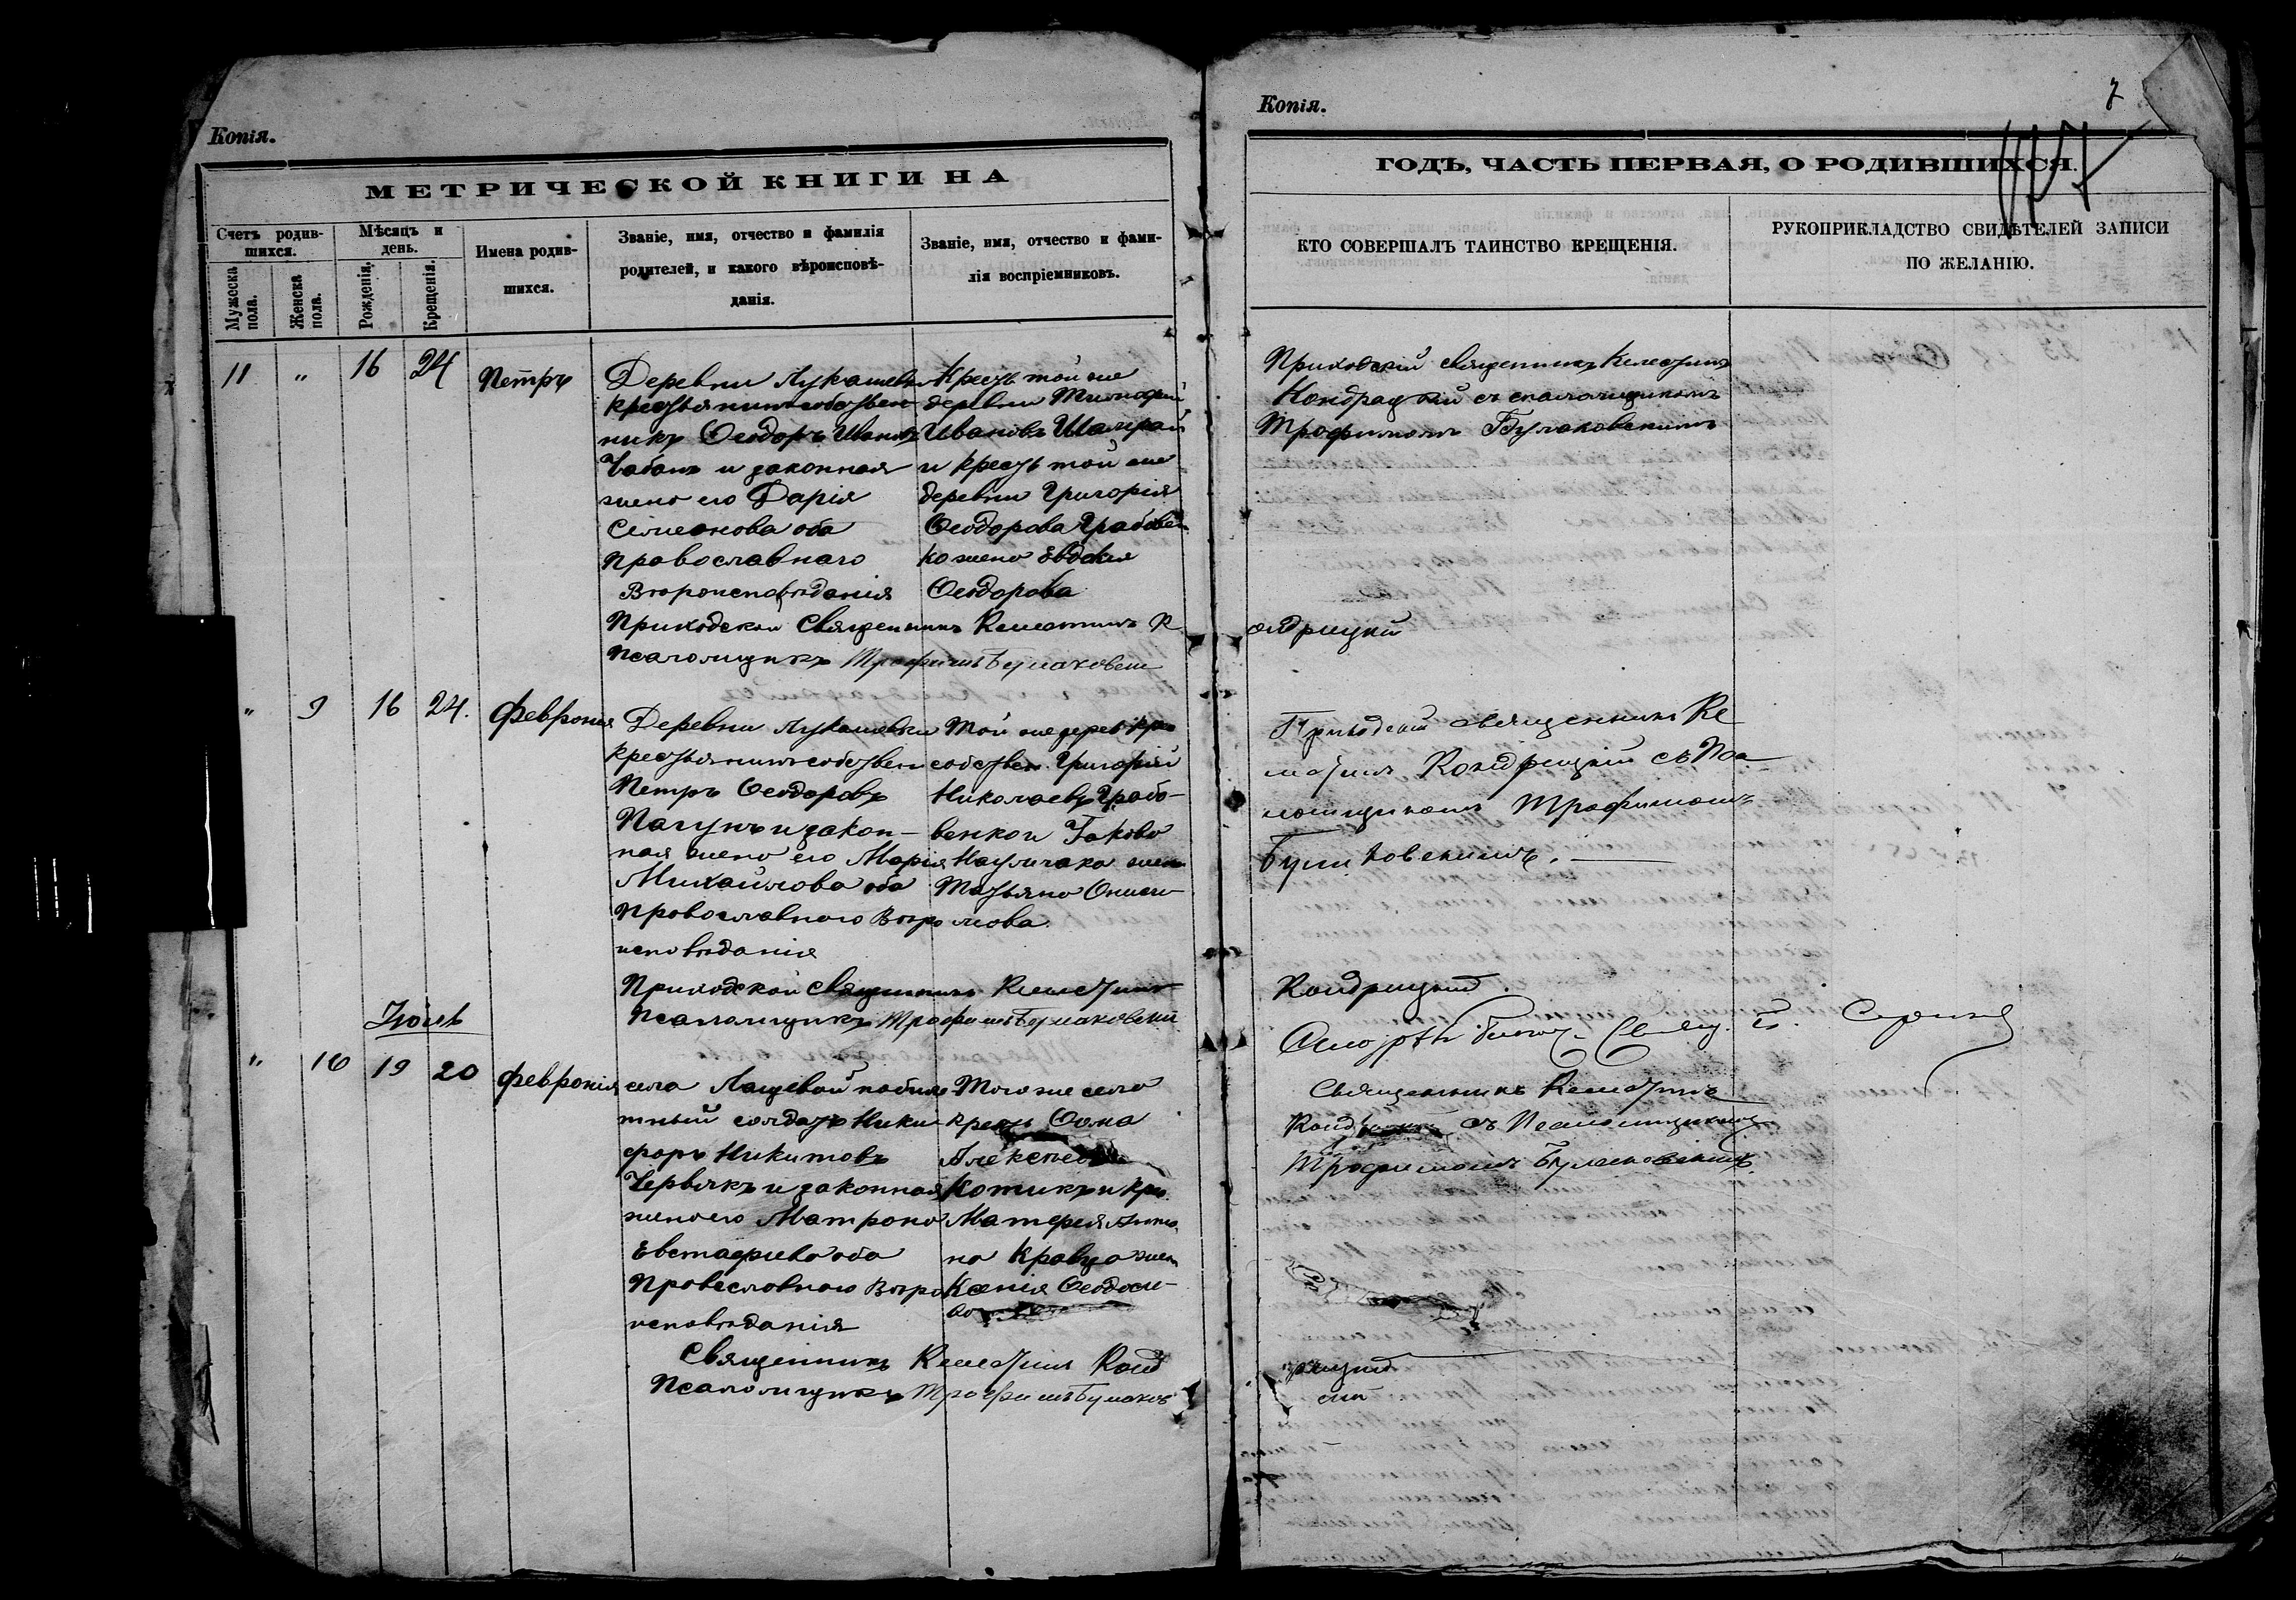 Копія.
МЕТРИЧЕСКОЙ КНИГИ НА
Счетъ родив-
шихся.
Мѣсяцъ и
день.
Мужеска
пола.
Женска
пола.
Рожденія.
Крещенія.
Имена родив-
шихся.
Званіе, имя, отчество и фамилія
родителей, и какого вѣроисповѣ-
данія.
Званіе, имя, отчество и фами-
лія воспріемниковъ.
11 " 16 24 Петръ
Деревни Лукашевки
крестьянинъ собствен
никъ Ѳеодоръ Ивановъ
Чабанъ и законная
жена его Дарія
Симеонова оба
православнаго
Вѣроисповѣданія
Крест той же
деревни Тимофей
Ивановъ
и крест той же
деревни Григорія
Ѳеодорова Грабовен
ко жена Евдокия
Ѳеодорова
Приходской Священникъ Климентъ К
Псаломщикъ Трофимъ Булаковски
" 9 16 24. Феврония
Деревни Лукашевки
крестьянинъ собствен
Петръ Ѳеодоровъ
и закон-
ная жена его Марія
Михайлова оба
православного Вѣро
исповѣданія
Той же дерев кре
собствен Григорий
Николаевъ Грабо-
венко и Іакова
жена
Татьяна Онисе-
мова
Приходской Священникъ
Псаломщикъ Трофимъ Булаковски
Іюль
" 10 19 20 Февронія
села
тный солдатъ Ники
форъ Никитовъ
Червякъ и законная
жена его Матрона
Евстафиева оба
Православного Вѣро
исповѣданія
Того же села
крест Ѳома
Алексѣевъ
Котикъ и кре
на Кравца жена
Ксенія Ѳеодосие-
ва
Священникъ Климентъ Конд
Псаломщикъ Трофимъ Булаков
Копія.
7
ГОДЪ, ЧАСТЬ ПЕРВАЯ, О РОДИВШИХСЯ.
КТО СОВЕРШАЛЪ ТАИНСТВО КРЕЩЕНІЯ.
РУКОПРИКЛАДСТВО СВИДѢТЕЛЕЙ ЗАПИСИ
ПО ЖЕЛАНІЮ.
Приходскій священникъ
Кондрацкій съ
Трофимомъ Булаковскимъ
ондрицкий
Приходский священникъ Кле
Кондрицкий съ Пса
ломщикомъ Трофимомъ
Булаковскимъ.
Кондрицкий.
Священникъ
съ Псаломщикомъ
Трофимомъ Булаковскимъ.
рицкий
ский